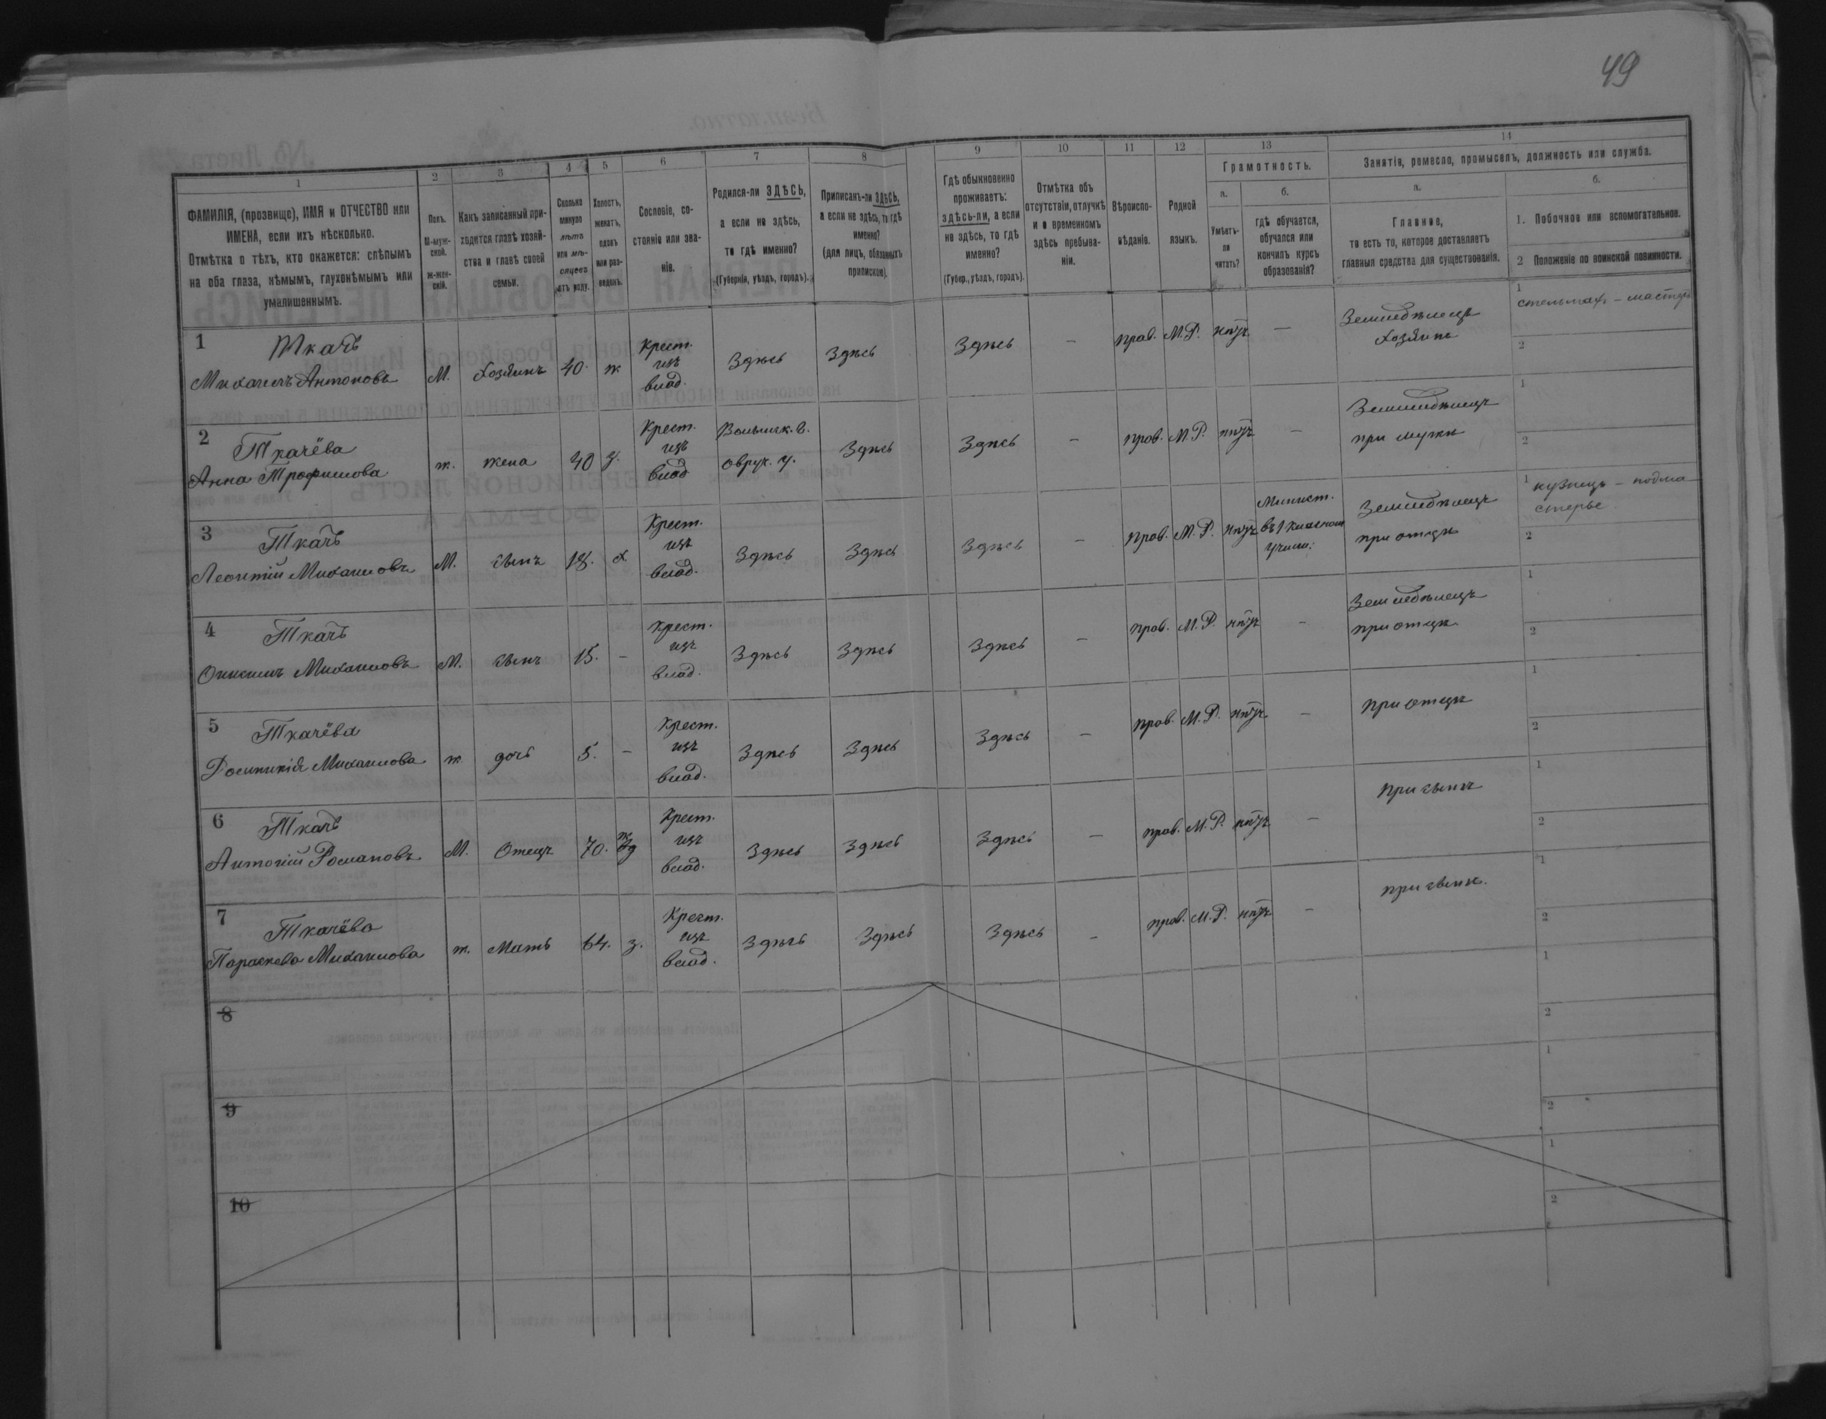 49
1 2 3 4 5 6 7 8 9 10 11 12 13 14
ФАМИЛІЯ, (прозвище), ИМЯ и ОТЧЕСТВО или
ИМЕНА, если ихъ нѣсколько.
Отмѣтка о тѣхъ, кто окажется: слѣпымъ
на оба глаза, нѣмымъ, глухонѣмымъ или
умалишеннымъ.
Полъ.
М-муж-
ской.
Ж-жен-
скій.
Какъ записанный при-
ходится главѣ хозяй-
ства и главѣ своей
семьи.
Сколько
минуло
лѣтъ
или мѣ-
сяцевъ
отъ роду.
Холостъ,
женатъ,
вдовъ
или раз-
веденъ.
Сословіе, со-
стояніе или зва-
ніе.
Родился-ли ЗДѢСЬ,
а если не здѣсь,
то гдѣ именно?
(Губернія, уѣздъ, городъ).
Приписанъ-ли ЗДѢСЬ,
а если не здѣсь, то гдѣ
именно?
(для лицъ, обязанныхъ
припискою).
Гдѣ обыкновенно
проживаетъ:
здѣсь-ли, а если
не здѣсь, то гдѣ
именно?
(Губер., уѣздъ, городъ).
Отмѣтка объ
отсутствіи, отлучкѣ
и о временномъ
здѣсь пребыва-
ніи.
Вѣроиспо-
вѣданіе.
Родной
языкъ.
Грамотность.
а.
Умѣетъ-
ли
читать?
б.
гдѣ обучается,
обучался или
кончилъ курсъ
образованія?
Занятія, ремесло, промыселъ, должность или служба.
а.
Главное,
то есть то, которое доставляетъ
главныя средства для существованія.
б.
1. Побочное или вспомогательное.
2 Положеніе по воинской повинности.
1 Ткачъ
Михаилъ Антоновъ М. Хозяинъ 40. ж Крест. изъ влад. Здѣсь Здѣсь Здѣсь — прав. М.Р. нѣтъ — Земледѣлецъ хозяинъ
1 стельмахъ - мастеръ
2
2 Ткачёва
Анна Трофимова ж. жена 40 з. Крест. изъ влад. Волынск. г. Овруч. у. Здѣсь Здѣсь — прав. М.Р. нѣтъ — Земледѣлецъ при мужѣ
1
2
3 Ткачъ
Леонтій Михаиловъ М. сынъ 18. х Крест. изъ влад. Здѣсь Здѣсь Здѣсь — прав. М.Р. Минист. въ 1 классном училищ. Земледѣлецъ при отцѣ
1 кузнецъ - подма
стерье
2
4 Ткачъ
Онисимъ Михаиловъ М. сынъ 15. — Крест. изъ влад. Здѣсь Здѣсь Здѣсь — прав. М.Р. нѣтъ — Земледѣлецъ при отцѣ
1
2
5 Ткачёва
Михаилова ж дочь 5. — Крест. изъ влад. Здѣсь Здѣсь Здѣсь — прав. М.Р. нѣтъ — при отцѣ
1
2
6 Ткачъ
Антоній Романовъ М. Отецъ 70. Крест. изъ влад. Здѣсь Здѣсь Здѣсь — прав. М.Р. нѣтъ — при сынѣ
1
2
7 Ткачёва
Параскева Михаилова ж. Мать 64. з. Крест. изъ влад. Здѣсь Здѣсь Здѣсь — прав. М.Р. нѣтъ — при сынѣ.
1
2
8
1
2
9
1
2
10
1
2